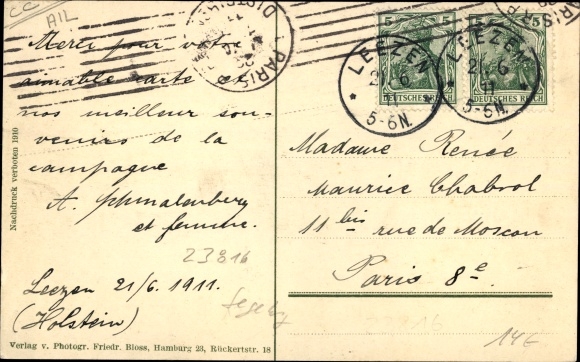 CC
AIL
Merci pour votre
aimable carte et
nos meilleur sou-
venirs de la
campagne
A. Schmalenberg
et femme.
23816
Leezen 21/6. 1911.
(Holstein)
Segebg
Verlag v. Photogr. Friedr. Bloss, Hamburg 23, Rückertstr. 18
Nachdruck verboten 1910
PARIS
DISTRIBUTION
PARIS
5 5
5
DEUTSCHES REICH
DEUTSCHES REICH
LEEZEN
21 6
11
5-6N.
LEEZEN
21 6
11
5-6N.
Madame Renée
Maurice Chabrol
11 bis rue de Moscou
Paris 8e.
14E